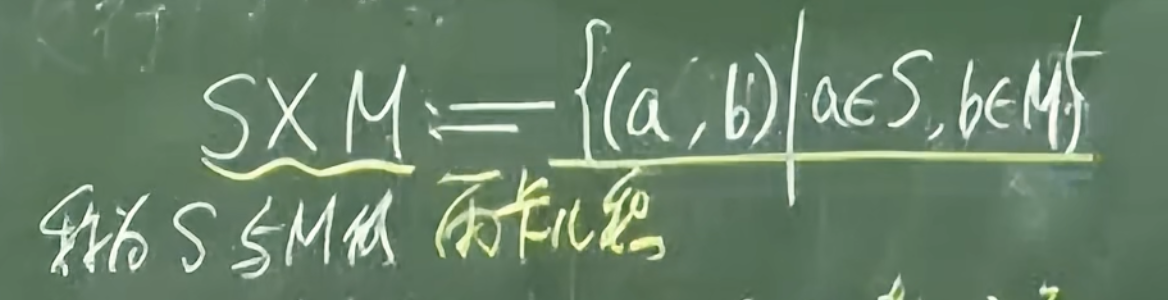 S×M := {(a, b) | a∈S, b∈M}
称为 S与M的 笛卡儿积